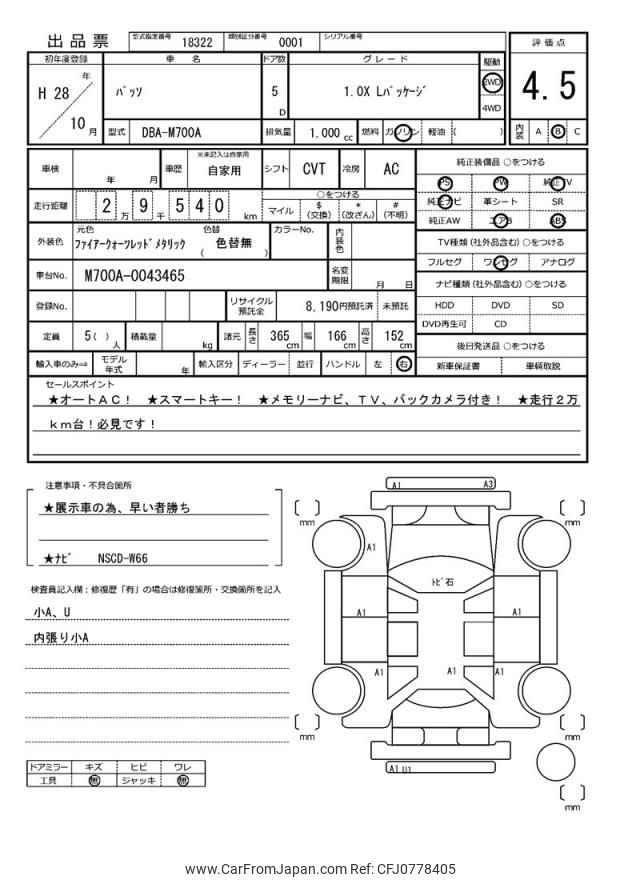 出品票
型式指定番号 18322 類別区分番号 0001 シリアル番号
初年度登録 車名 ドア数 グレード 駆動 評価点
H 28 年 10 月
パッソ 5 D 1.0X Lパッケージ 2WD 4WD
4.5
型式 DBA-M700A 排気量 1.000 cc 燃料 ガソリン 軽油 ( )
内装 A B C
車検 年 月 車歴 ※未記入は自家用 自家用 シフト CVT 冷房 AC
走行距離 2 万 9 千 5 4 0 km
○をつける
マイル $(交換) *(改ざん) #(不明)
外装色 元色 ファイアークォーツレッドメタリック 色替 色替無 ( ) カラーNo. 内装色
車台No. M700A-0043465 名変期限 月 日
登録No. リサイクル預託金 8,190円預託済 未預託
定員 5( ) 人 積載量 kg 諸元 長さ 365 cm 幅 166 cm 高さ 152 cm
輸入車のみ⇒ モデル年式 年 輸入区分 ディーラー 並行 ハンドル 左 右
純正装備品 ○をつける
PS PW 純正TV
純正ナビ 革シート SR
純正AW エアB ABS
TV種類(社外品含む)○をつける
フルセグ ワンセグ アナログ
ナビ種類(社外品含む)○をつける
HDD DVD SD
DVD再生可 CD
後日発送品 ○をつける
新車保証書 車輌取説
セールスポイント
★オートAC! ★スマートキー! ★メモリーナビ、TV、バックカメラ付き! ★走行2万
km台!必見です!
注意事項・不具合箇所
★展示車の為、早い者勝ち
★ナビ NSCD-W66
検査員記入欄:修復歴「有」の場合は修復箇所・交換箇所を記入
小A、U
内張り小A
ドアミラー キズ ヒビ ワレ
工具 無 ジャッキ 無
A1 A3
mm mm
A1
トビ石
A1 A1
A1 A1 A1
mm mm
A1 U1
mm
www.CarFromJapan.com Ref: CFJ0778405